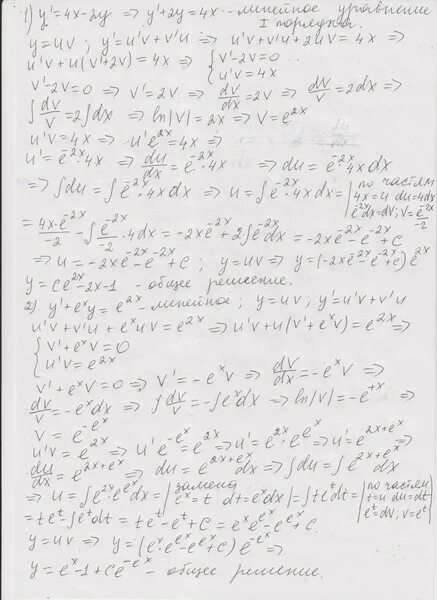 1) y'=4x-2y ⇒ y'+2y=4x - линейное уравнение
I порядка.
y=uv; y'=u'v+v'u ⇒ u'v+v'u+2uv=4x ⇒
u'v+u(v'+2v)=4x ⇒ { v'-2v=0
u'v=4x
v'-2v=0 ⇒ v'=2v ⇒ dv/dx=2v ⇒ dv/v=2dx ⇒
∫dv/v=2∫dx ⇒ ln|v|=2x ⇒ v=e^{2x}
u'v=4x ⇒ u'e^{2x}=4x ⇒
u'=e^{-2x}·4x ⇒ du/dx=e^{-2x}·4x ⇒ du=e^{-2x}·4xdx
⇒ ∫du=∫e^{-2x}·4xdx ⇒ u=∫e^{-2x}·4xdx=|по частям
4x=u du=4dx
e^{-2x}dx=dv; v=e^{-2x}/-2|
=4x·e^{-2x}/-2-∫e^{-2x}/-2·4dx=-2xe^{-2x}+2∫e^{-2x}dx=-2xe^{-2x}-e^{-2x}+C
⇒ u=-2xe^{-2x}-e^{-2x}+C; y=uv ⇒ y=(-2xe^{-2x}-e^{-2x}+C)e^{2x}
y=Ce^{2x}-2x-1 - общее решение.
2) y'+e^x y=e^{2x} - линейное; y=uv; y'=u'v+v'u
u'v+v'u+e^x uv=e^{2x} ⇒ u'v+u(v'+e^x v)=e^{2x} ⇒
{ v'+e^x v=0
u'v=e^{2x}
v'+e^x v=0 ⇒ v'=-e^x v ⇒ dv/dx=-e^x v ⇒
dv/v=-e^x dx ⇒ ∫dv/v=-∫e^x dx ⇒ ln|v|=-e^{+x} ⇒
v=e^{-e^x}
u'v=e^{2x} ⇒ u'e^{-e^x}=e^{2x} ⇒ u'=e^{2x}·e^{e^x} ⇒ u'=e^{2x+e^x} ⇒
du/dx=e^{2x+e^x} ⇒ du=e^{2x+e^x}dx ⇒ ∫du=∫e^{2x+e^x}dx
⇒ u=∫e^{2x}·e^{e^x}dx=|замена
e^x=t dt=e^x dx|=∫te^t dt=|по частям
t=u du=dt
e^t=dv, v=e^t|
=te^t-∫e^t dt=te^t-e^t+C=e^x e^{e^x}-e^{e^x}+C.
y=uv ⇒ y=(e^x·e^{e^x}-e^{e^x}+C)e^{-e^x} ⇒
y=e^x-1+Ce^{-e^x} - общее решение.